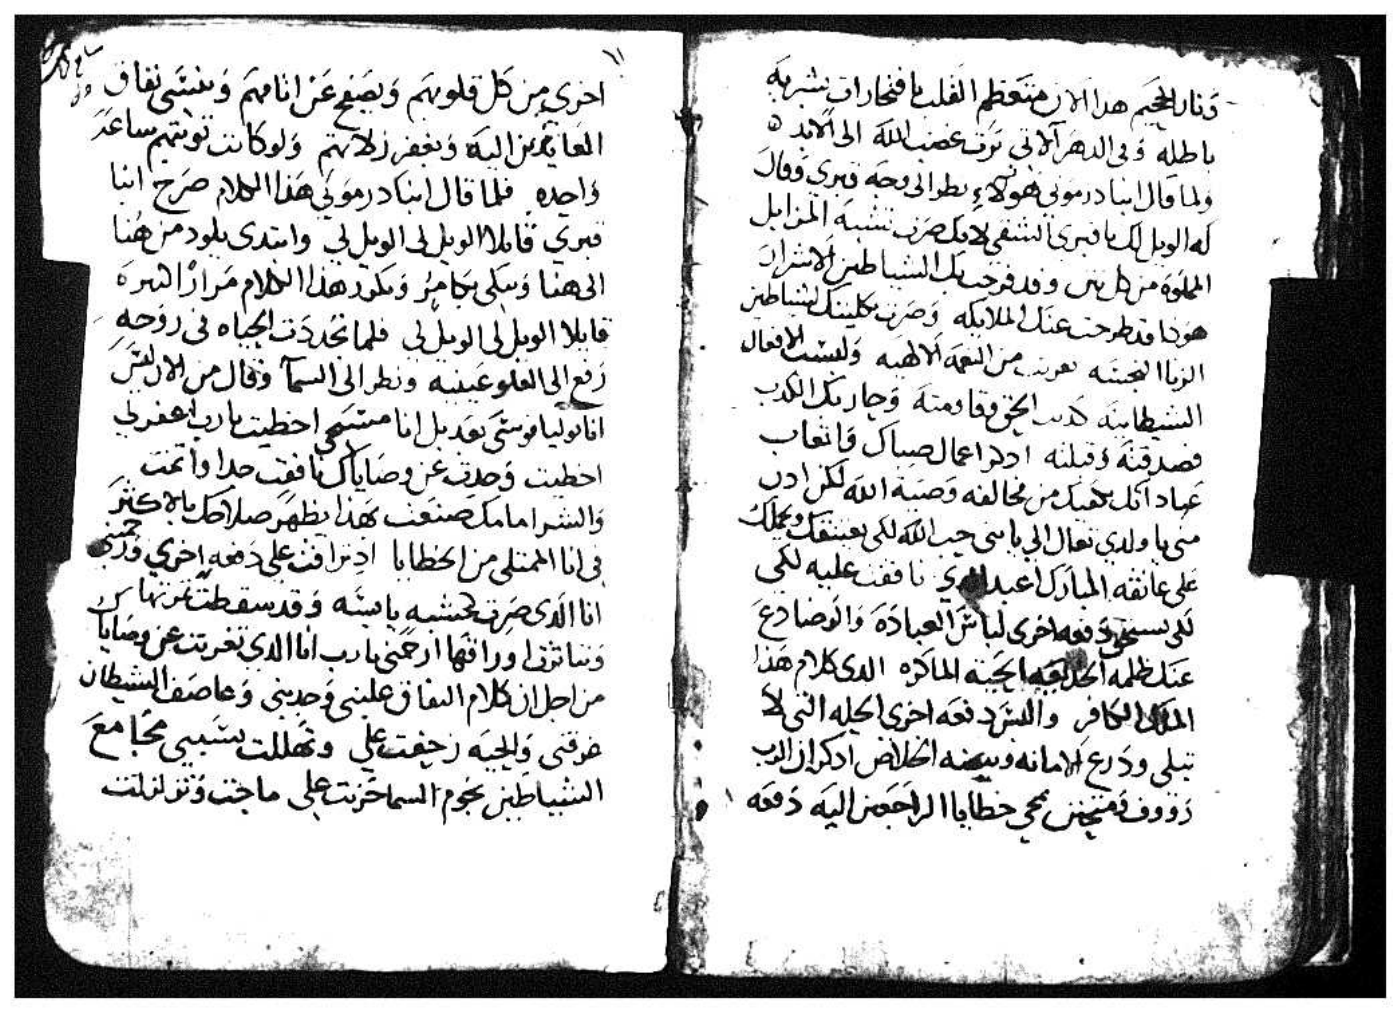 ونار الجحيم هدا الان متعظم القلب بافتخارات بشريه
باطله وفي الدهر الاتي ترت غضب الله الى الابد
ولما قال انبا درموني هولاء نظر الى وجه قبري وقال
له الويل لك يا قبري الشقي لانك صرت تشبه المزابل
المملوه من كل نتن وقد فرحت بك الشياطين الاشرار
هودا قد طرحت عنك الملايكه وصرت بكليتك لشياطين
الزنا النجسه تعريت من النعمه الالهيه ولبست الافعال
الشيطانيه كذبت الحق وقاومته وجاربك الكدب
فصدقته وقبلته ادكر اعمال صباك واتعاب
عبادتك يكفيك من مخالفه وصية الله لكن ادن
مني يا ولدي تعال الي يا بني حب الله لكي يعتنقك ويحملك
على عاتقه المبارك اعبد نافقت عليه لكي
لكي دفعه اخرى لباس العباده والوضادع
عنك ظلمه الحيه الماكره الدى كلام هذا
الملاك الكافر والبس دفعه اخرى الحله التي لا
تبلى ودرع الامانه وبيضه الخلاص ادكر ان الرب
رووف متحنن يمحي خطايا الراجعين اليه دفعه
١١
اخرى من كل قلوبهم ويصفح عن اتامهم وينسى نفاق
العايدين اليه ويغفر زلاتهم ولو كانت توبتهم ساعه
واحده فلما قال انبا درموني هذا الكلام صرخ انبا
قبري قايلا الويل لي الويل لي وابتدى يلود من هنا
الى هنا ويبكي بكا مر ويكرر هذا الكلام مرارا كتيره
قايلا الويل لي الويل لي فلما تجددت الحياه في روحه
رفع الى العلو عينيه ونظر الى السما وقال من الان ليس
انا بوليا موسى بعد بل انا مسمى اخطيت يا رب اغفر لي
اخطيت وحدت عن وصاياك نافقت جدا واتمت
والشر امامك صنعت بهذا يظهر صلاحك بالاكثر
في انا الممتلي من الخطايا اد تراف علي دفعه اخرى ورحمني
انا الدى صرت كخشبه يابسه وقد سقطت تمرتها
وتناترت اوراقها ارحمني يا رب انا الدى تعريت عن وصاياك
من اجل ان كلام النفاق غلبني وجدبني وعاصف الشيطان
غرقني والحيه زحفت علي وتهللت بسببي مجامع
الشياطين نجوم السما حزنت علي ماجت وتزلزلت